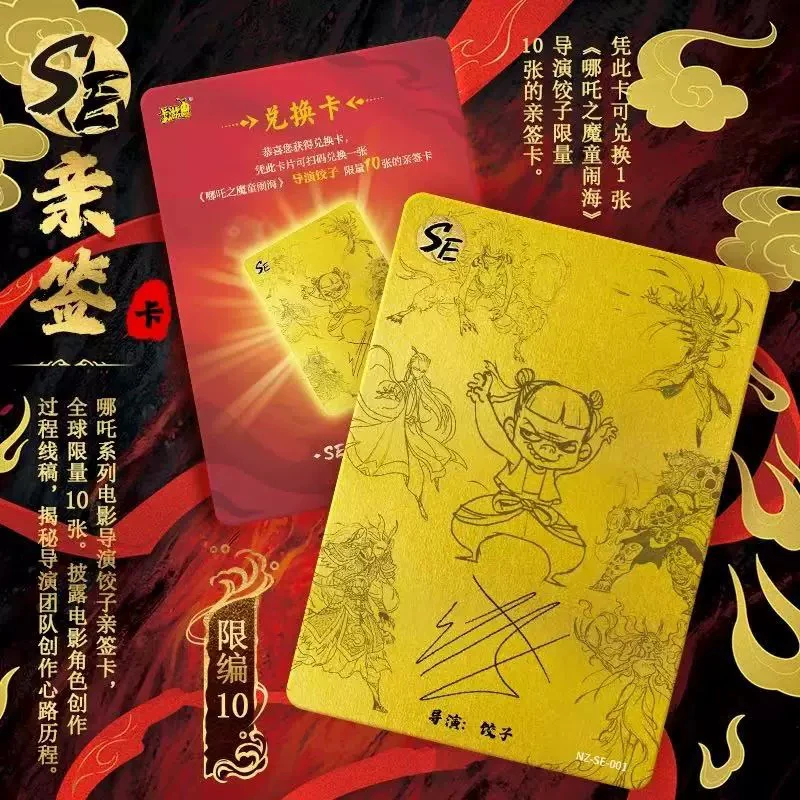 SE
亲签
卡
哪吒系列电影导演饺子亲签卡，
全球限量10张。披露电影角色创作
过程线稿，揭秘导演团队创作心路历程。
限编10
卡游
兑换卡
恭喜您获得兑换卡，
凭此卡片可扫码兑换一张
《哪吒之魔童闹海》 导演饺子 限量10张的亲签卡
SE
SE
凭此卡可兑换1张
《哪吒之魔童闹海》
导演饺子限量
10张的亲签卡。
SE
导演：饺子
NZ-SE-001